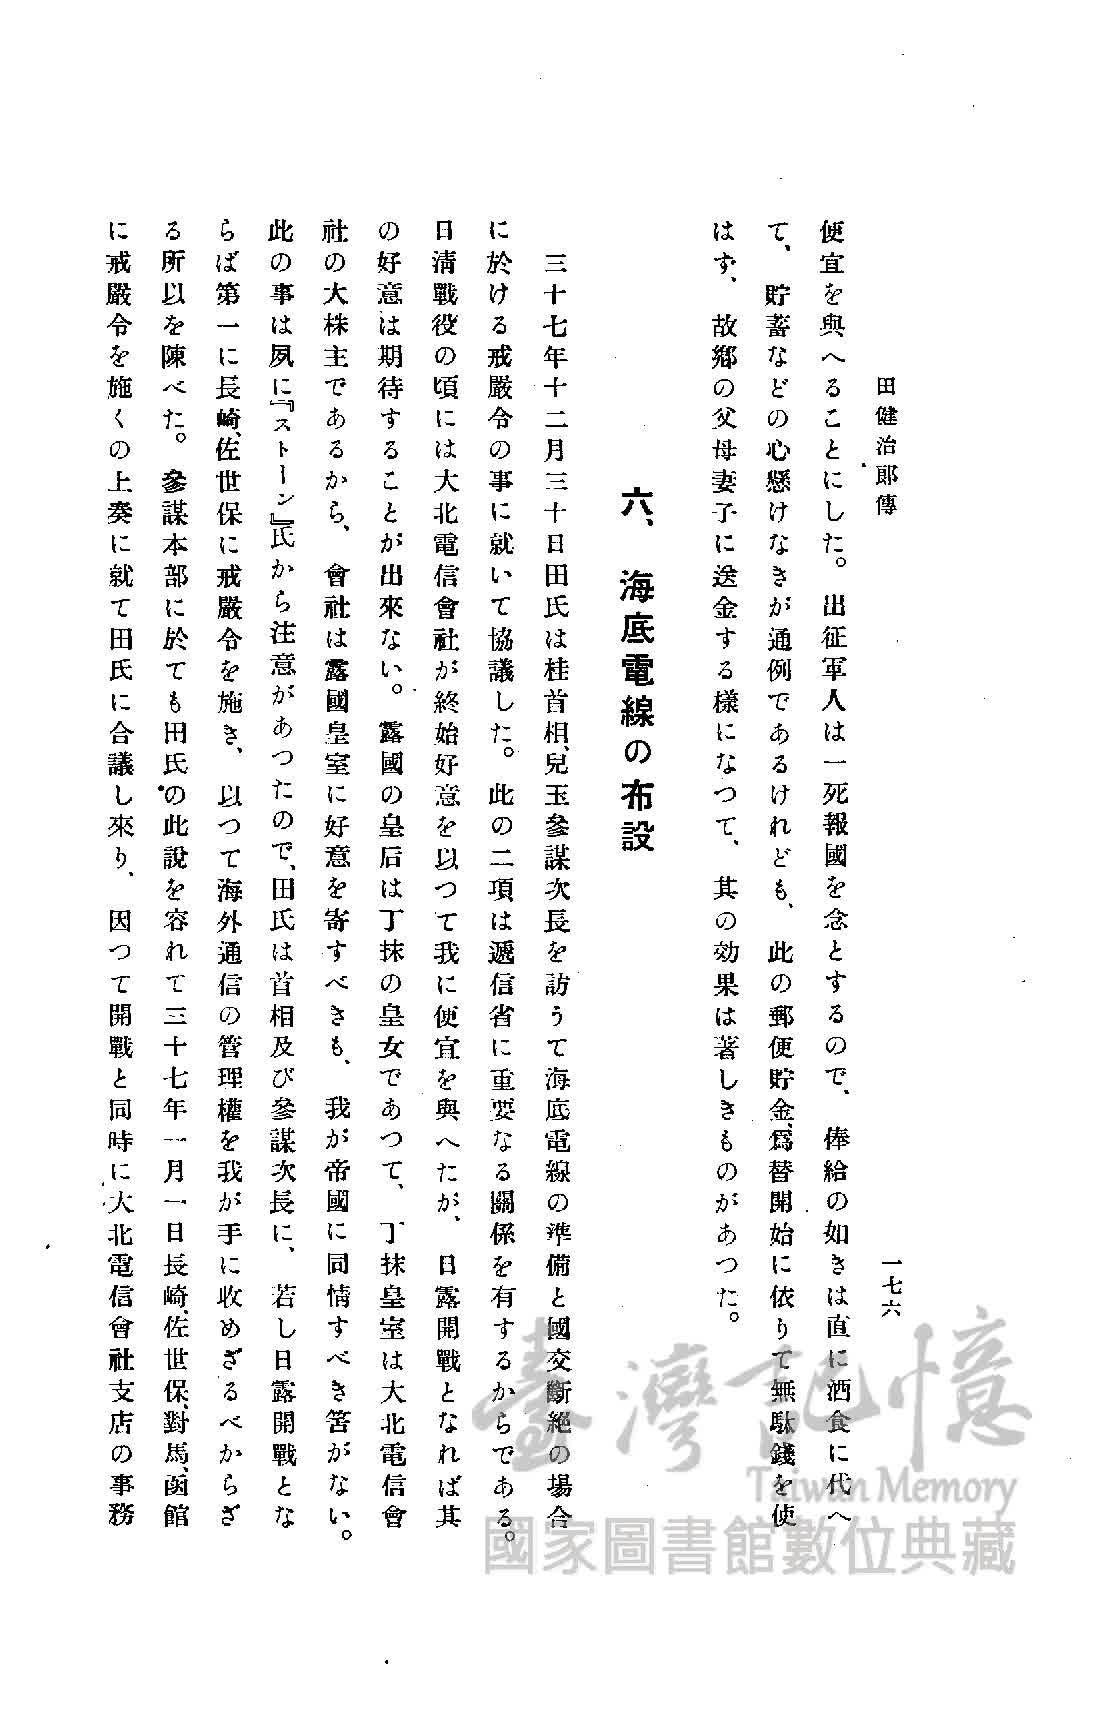 田健治郎傳
一七六
便宜を與へることにした。出征軍人は一死報國を念とするので、俸給の如きは直に酒食に代へ
て、貯蓄などの心懸けなきが通例であるけれども、此の郵便貯金、爲替開始に依りて無駄錢を使
はず、故鄕の父母妻子に送金する樣になつて、其の効果は著しきものがあつた。
六、海底電線の布設
三十七年十二月三十日田氏は桂首相、兒玉參謀次長を訪うて海底電線の準備と國交斷絶の場合
に於ける戒嚴令の事に就いて協議した。此の二項は遞信省に重要なる關係を有するからである。
日淸戰役の頃には大北電信會社が終始好意を以つて我に便宜を與へたが、日露開戰となれば其
の好意は期待することが出來ない。露國の皇后は丁抹の皇女であつて、丁抹皇室は大北電信會
社の大株主であるから、會社は露國皇室に好意を寄すべきも、我が帝國に同情すべき筈がない。
此の事は夙に『ストーン』氏から注意があつたので、田氏は首相及び參謀次長に、若し日露開戰とな
らば第一に長崎、佐世保に戒嚴令を施き、以つて海外通信の管理權を我が手に收めざるべからざ
る所以を陳べた。參謀本部に於ても田氏の此說を容れて三十七年一月一日長崎、佐世保、對馬、函館
に戒嚴令を施くの上奏に就て田氏に合議し來り、因つて開戰と同時に大北電信會社支店の事務
臺灣記憶
Taiwan Memory
國家圖書館數位典藏